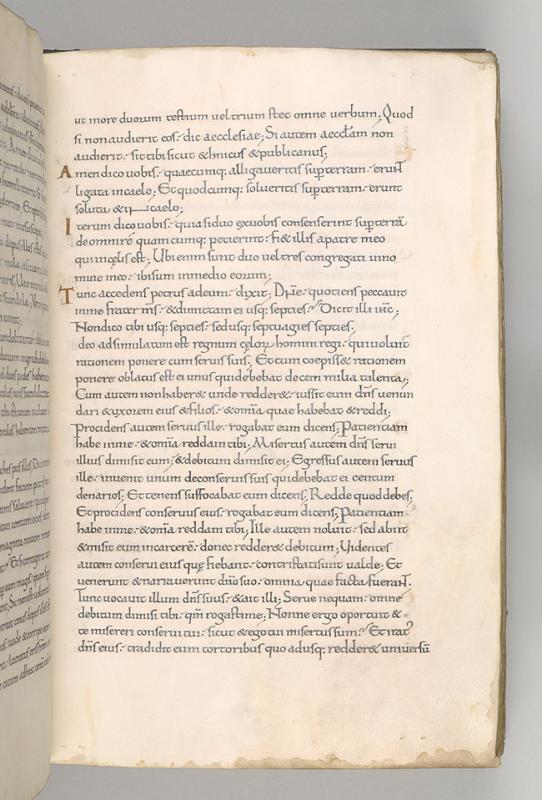 ut more duorum testium uel trium stet omne uerbum; Quod
si non audierit eos· dic aecclesiae; Si autem aeccłam non
audierit· sit tibi sicut &hnicus & publicanus;
Amen dico uobis· quaecumq: alligaueritis sup terram· erunt
ligata in caelo; Et quodcumq: solueritis sup terram· erunt
soluta & in caelo;
Iterum dico uobis· quia si duo ex uobis consenserint sup terrā
de omni re quamcumq: petierint· fi& illis a patre meo
qui in cęlis est; Ubi enim sunt duo uel tres congregati in no
mine meo· ibi sum in medio eorum;
Tunc accedens petrus ad eum· dixit; Dñe· quotiens peccauit
in me frater ms· & dimittam ei usq: septies; Dicit illi
Non dico tibi usq: septies· sed usq: septuagies septies;
deo adsimulatum est regnum cęlor homini regi· qui uoluit
rationem ponere cum seruis suis; Et cum coepiss& rationem
ponere oblatus est ei unus qui debebat decem milia talenta;
Cum autem non haber& unde redder&· iussit eum dñs uenun
dari & uxorem eius & filios· & omīa quae habebat & reddi;
Procidens autem seruus ille· rogabat eum dicens; Patientiam
habe in me· & omīa reddam tibi; Misertus autem dñs serui
illius dimisit eum; & debitum dimisit ei; Egressus autem seruus
ille· inuenit unum de conseruis suis qui debebat ei centum
denarios; Et tenens suffocabat eum dicens; Redde quod debes;
Et procidens conseruus eius· rogabat eum dicens; Patientiam
habe in me· & omīa reddam tibi; Ille autem noluit· sed abiit
& misit eum in carcerē· donec redder& debitum; Uidentes
autem conserui eius quę fiebant· contristati sunt ualde; Et
uenerunt & narrauerunt dño suo· omnia quae facta fuerant.
Tunc uocauit illum dñs suus· & ait illi; Serue nequam· omne
debitum dimisi tibi· qm̄ rogasti me; Nonne ergo oportuit &
te misereri conserui tui· sicut & ego tui misertus sum· Et irat
dñs eius· tradidit eum tortoribus quo adusq: redder& uniuersū